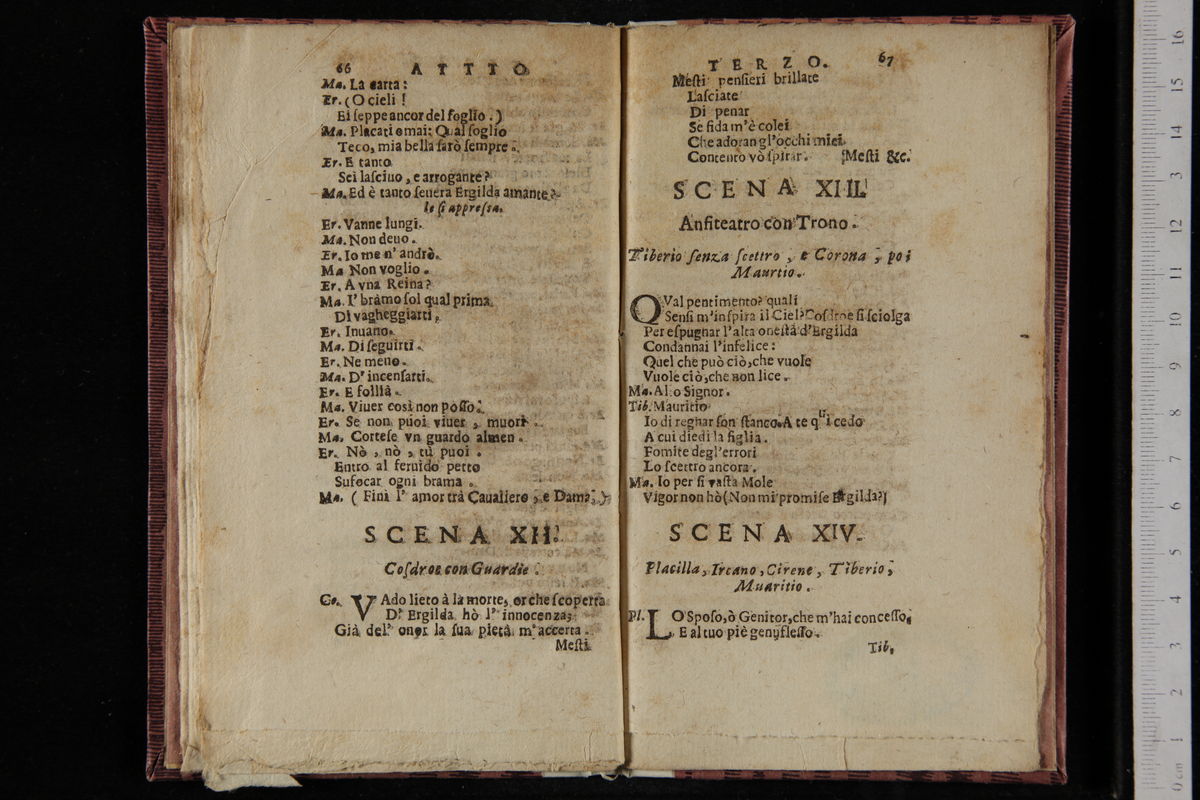 66 ATTTO
Ma. La carta:
Er. (O cieli!
Ei ſeppe ancor del foglio.)
Ma. Placati omai: Qual foglio
Teco, mia bella ſarò ſempre.
Er. E tanto
Sei laſciuo, e arrogante?
Ma. Ed è tanto ſeuera Ergilda amante?
le ſi appreſſa.
Er. Vanne lungi.
Ma. Non deuo.
Er. Io me n'andrò.
Ma Non voglio.
Er. A vna Reina?
Ma. I' bràmo ſol qual prima
Di vagheggiarti,
Er. Inuano.
Ma. Di ſeguirti.
Er. Ne meno.
Ma. D'incenſarti.
Er. E follìa.
Ma. Viuer così non poſſo.
Er. Se non puoi viuer, muori.
Ma. Corteſe vn guardo almen.
Er. Nò, nò, tù puoi.
Entro al feruido petto
Sufocar ogni brama.
Ma. (Finì l'amor trà Caualiero, e Dama.)
SCENA XII.
Coſdroe con Guardie.
Co. VAdo lieto à la morte, or che ſcoperta
D'Ergilda hò l'innocenza;
Già del'onor la ſua pietà m'accerta.
Meſti
TERZO. 67
Meſti penſieri brillate
Laſciate
Di penar
Se fida m'è colei
Che adoran gl'occhi miei
Contento vò ſpirar. Meſti &c.
SCENA XIII.
Anfiteatro con Trono.
Tiberio ſenza ſcettro, e Corona, poi
Maurtio.
QVal pentimento? quali
Senſi m'inſpira il Ciel? Coſdroe ſi ſciolga
Per eſpugnar l'alta oneſtà d'Ergilda
Condannai l'infelice:
Quel che può ciò, che vuole
Vuole ciò, che non lice.
Ma. Alto Signor.
Tib. Mauritio
Io di regnar ſon ſtanco. A te qui cedo
A cui diedi la figlia.
Fomite degl'errori
Lo ſcettro ancora.
Ma. Io per ſi vaſta Mole
Vigor non hò (Non mi promiſe Ergilda?)
SCENA XIV.
Placilla, Ircano, Cirene, Tiberio,
Muaritio.
Pl. LO Spoſo, ò Genitor, che m'hai conceſſo,
E al tuo piè genufleſſo.
Tib.
16
15
14
13
12
11
10
9
8
7
6
5
4
3
2
1
0 cm